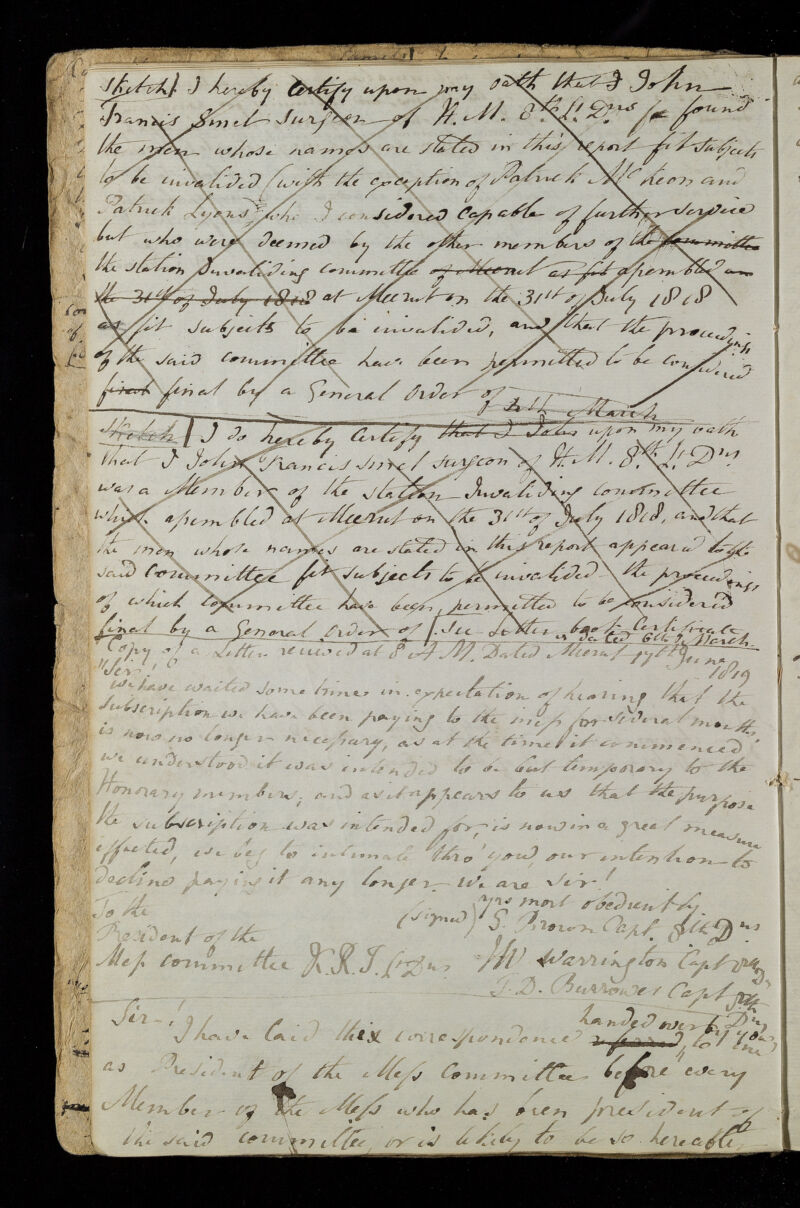 Sketch} I hereby certify upon my oath that I John
Francis Smet Surgeon of H. M. 8th Lt. Dns found
the men whose names are stated in this report fit subjects
to be invalided (with the exception of Patrick Mc Keon and
Patrick Lyons, who I considered capable of further service
but who were deemed by the other members of the committee
the station Invaliding committee of Meerut as fit assembled on
the 31st of July 1818 at Meerut on the 31st of July 1818
as fit subjects to be invalided, and that the proceedings
of the said committee have been permitted to be considered
final final by a General Order of March
Sketch} I do hereby Certify that I John upon my oath
that I John Francis Smet Surgeon of H. M. 8th Lt. Dns
was a Member of the station Invaliding committee
which assembled at Meerut on the 31st of July 1818, and that
the men whose names are stated in this report appeared to the
said committee fit subjects to be invalided – the proceedings
of which committee have been permitted to be considered
final by a General Order of [see Letter book Certificate
dated 6th March
Copy of a Letter received at 8 A M. Dated Meerut 17th June
1819
"Sir!
We have waited some time in expectation of hearing that the
subscription we have been paying to the mess for several months,
is now no longer necessary, as at the time it commenced
we understood it was intended to be but temporary to the
Honorary members; and as it appears to us that the purpose
the subscription was intended for, is now in a great measure
effected, we beg to intimate thro' you, our intention to
decline paying it any longer – We are Sir!
yrs most obediently
To the (signed) G. Brown Capt. 8th Dns
President of the
Mess committee K. R. I. Lt Dns. Warrington Capt
T. D. Burrowes Capt 8th Dns
Sir –! handed over by you
I have laid this correspondence referred, to me
as President of the Mess Committee before every
Member of the Mess who has been president of
the said committee, or is likely to be so hereafter,